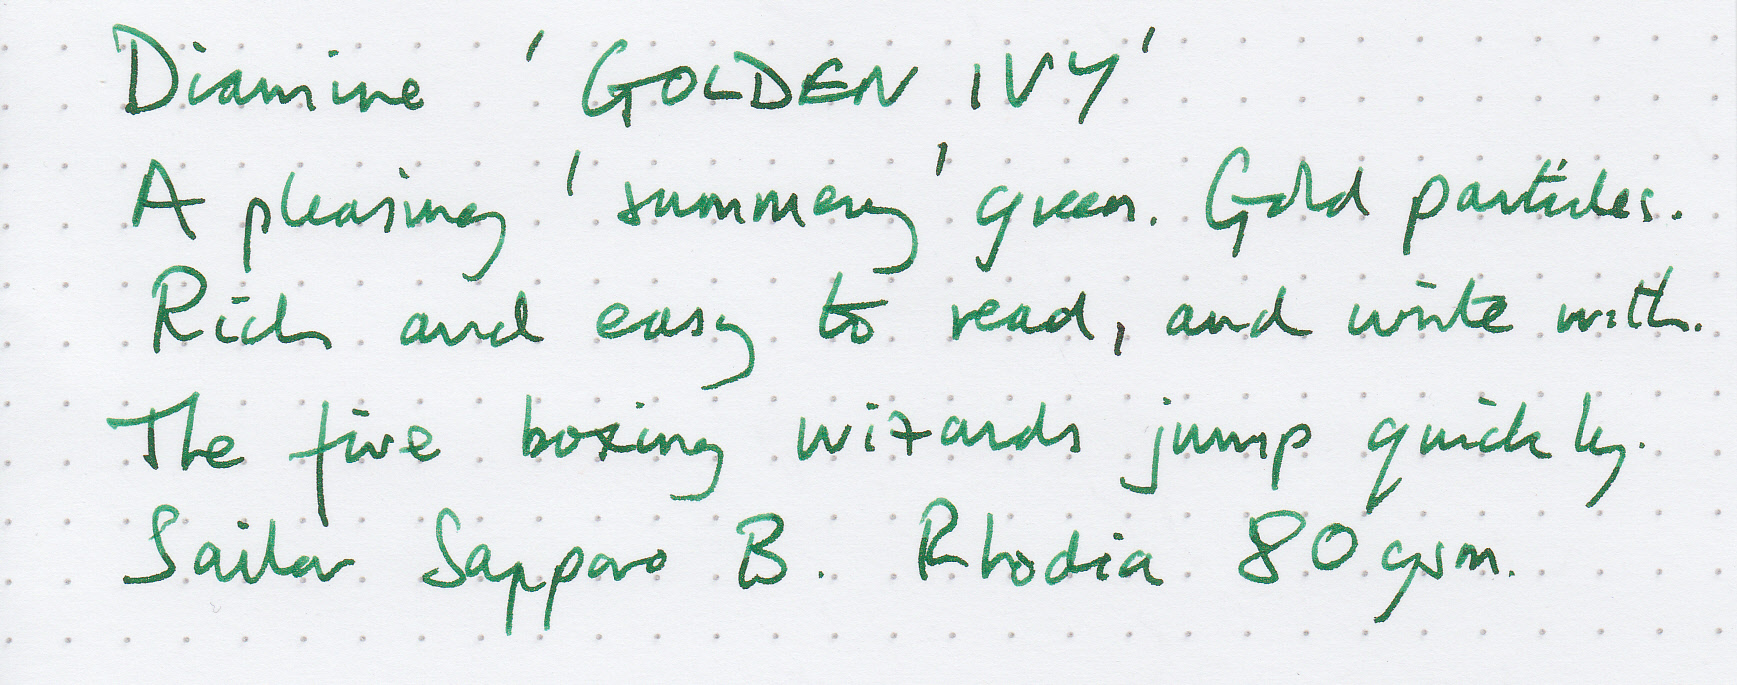 Diamine 'GOLDEN IVY'
A pleasing 'summery' green. Gold particles.
Rich and easy to read, and write with.
The five boxing wizards jump quickly.
Sailor Sapporo B. Rhodia 80gsm.